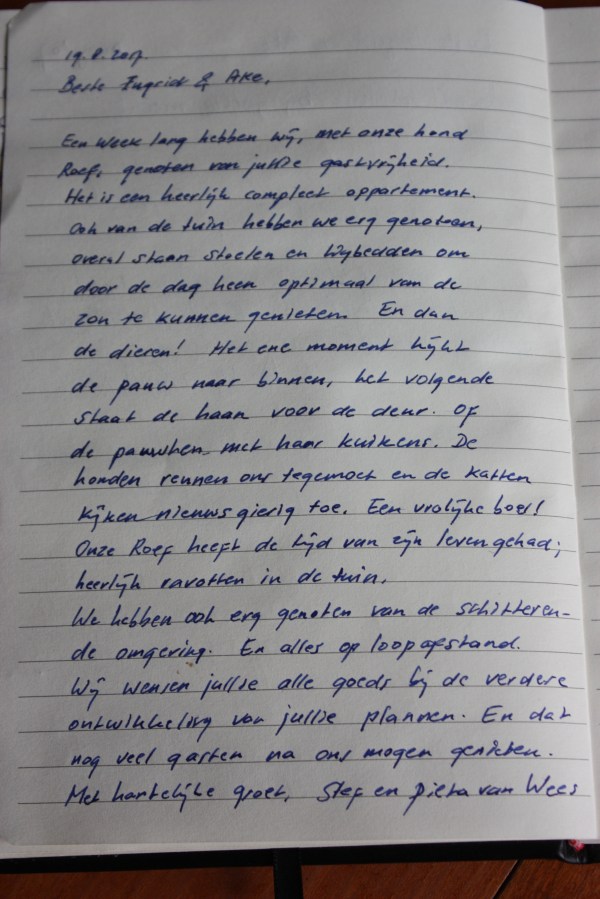 19.8.2017.
Beste Ingrid & Ake,
Een week lang hebben wij, met onze hond
Roef, genoten van jullie gastvrijheid.
Het is een heerlijk compleet appartement.
Ook van de tuin hebben we erg genoten,
overal staan stoelen en ligbedden om
door de dag heen optimaal van de
zon te kunnen genieten. En dan
de dieren! Het ene moment kijkt
de pauw naar binnen, het volgende
staat de haan voor de deur. Of
de pauwhen met haar kuikens. De
honden rennen ons tegemoet en de katten
kijken nieuwsgierig toe. Een vrolijke boel!
Onze Roef heeft de tijd van zijn leven gehad;
heerlijk ravotten in de tuin.
We hebben ook erg genoten van de schitteren-
de omgeving. En alles op loopafstand.
Wij wensen jullie alle goeds bij de verdere
ontwikkeling van jullie plannen. En dat
nog veel gasten na ons mogen genieten.
Met hartelijke groet, Stef en Pieta van Wees